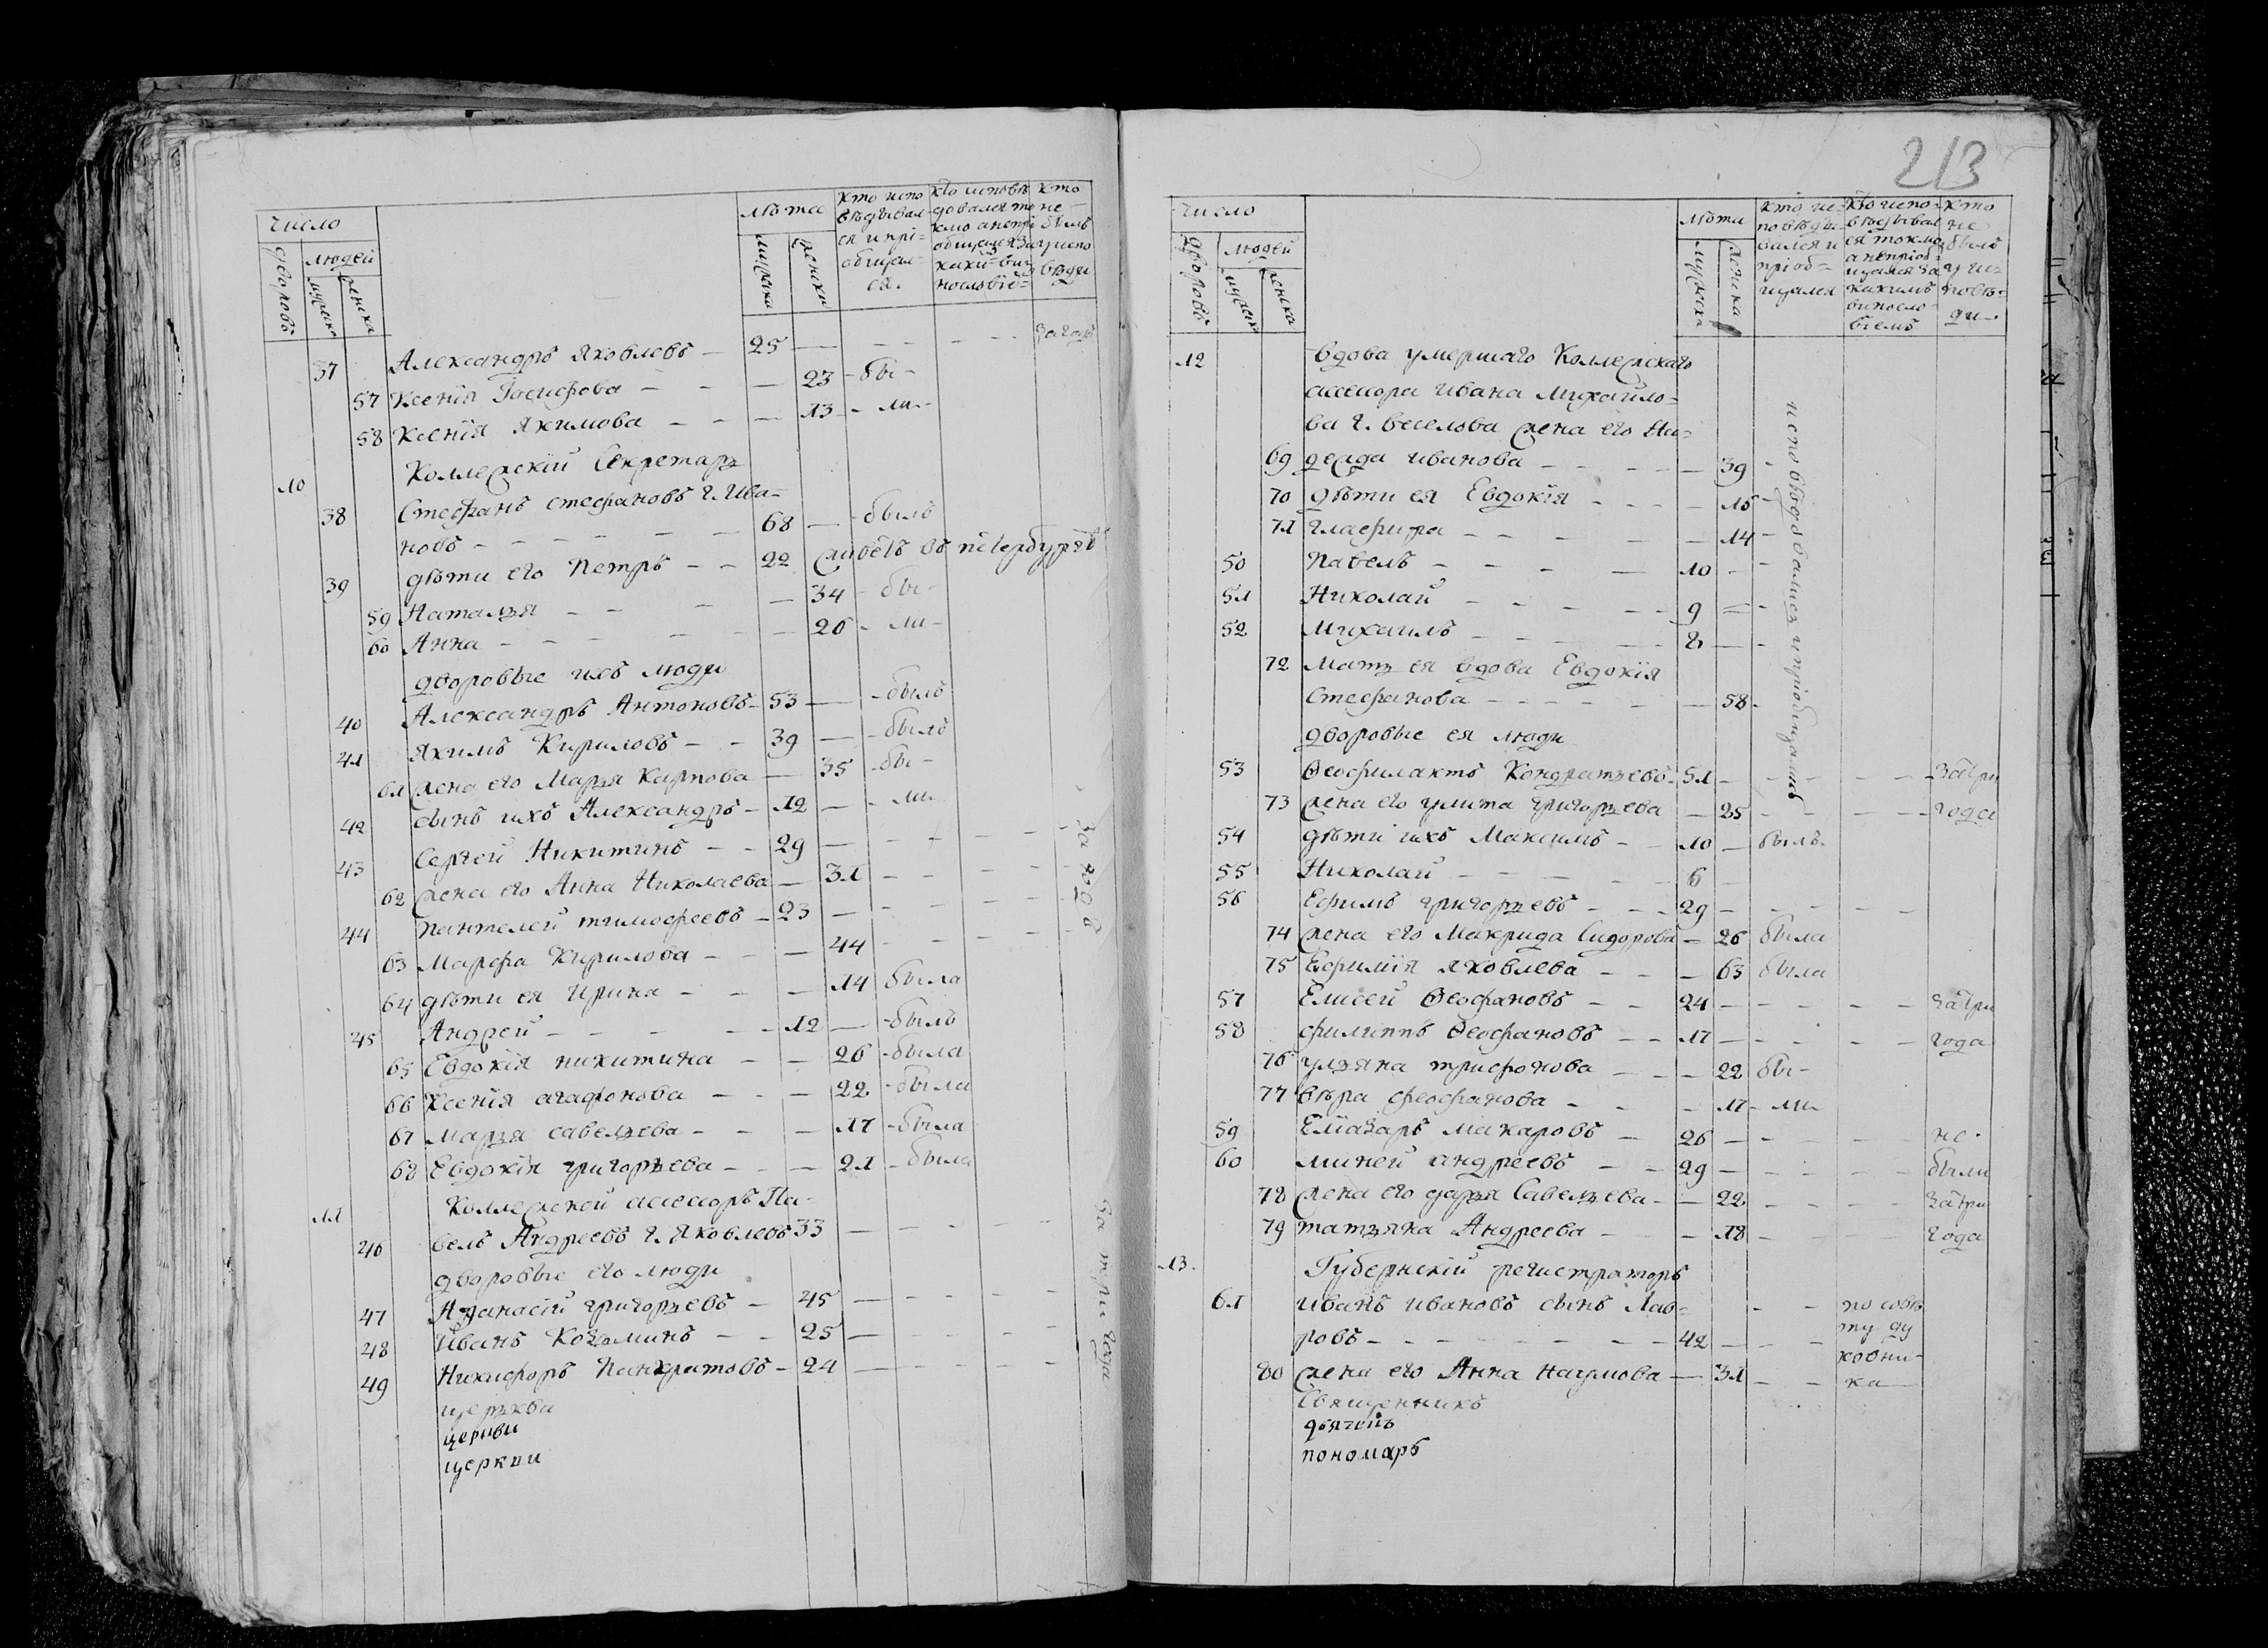 число
дворовъ
людей
мужеска
женска
лѣта
мужеска
женски
кто испо
вѣдывал-
ся и прі=
общал=
ся.
кто исповѣ
довался то
кмо а не прі
общался за
каки=ви
нословіе=
кто
не
былъ
у испо
вѣди
37 Александръ Яковлевъ — 25 — — — — За годъ
57 Ксенія Іосифова — — — 23 - бы-
58 Ксенія Якимова — — — 13 - ли-
10 Коллежскій Секретарь
38 Стефанъ Стефановъ г. Ива=
новъ — — — — — 68 — - былъ
39 дѣти его Петръ — — 22 живетъ въ петербургѣ
59 Наталья — — — — 34 - бы-
60 Анна — — — — — 26 - ли-
дворовые ихъ люди
40 Александръ Антоновъ — 53 — - былъ
41 Якимъ Кириловъ — — 39 — - былъ
61 жена его Марья Карпова — 35 - бы-
42 сынъ ихъ Александръ — 12 — - ли-
43 Сергей Никитинъ — — 29 — — — — —
62 жена его Анна Николаева — 31 — — — —
44 Пантелей тимофеевъ — 23 — — — — —
63 Марфа Кирилова — — — 44 — — — —
За года
64 дѣти ея Ирина — — — 14 была
45 Андрей — — — — — 12 — - былъ
65 Евдокія никитина — — 26 - была
66 Ксенія агафонова — — — 22 - была
67 Марья савельева — — — 17 - была
68 Евдокія григорьева — — — 21 - была
11 Коллежской ассессоръ Па-
46 велъ Андреевъ г. Яковлевъ 33 — — — — —
дворовые его люди
47 Афанасій григорьевъ — 45 — — — — —
48 Иванъ Козминъ — — 25 — — — — —
49 Никифоръ Панкратовъ — 24 — — — — —
За три года
церкви
церкви
церкви
213
число
дворовъ
людей
мужеска
женска
лѣта
мужеска
женска
кто ис=
повѣды
вался и
пріоб=
щался
кто испо-
вѣдывал
ся токмо
а не пріоб=
щался за
какимъ
винсло-
віемъ
кто
не
былъ
у ис=
повѣ=
ди.
12 вдова умершаго Коллежскаго
ассесора Ивана Михайло=
ва г. Веселова жена его На=
69 дежда иванова — — — — — 39 -
70 дѣти ея Евдокія — — — — 16 -
71 глафира — — — — — — 14 -
50 Павелъ — — — — 10 — -
51 Николай — — — — — 9 — -
52 Михаилъ — — — — — 8 — -
72 Мать ея вдова Евдокія
Стефанова — — — — — — 58 -
исповѣдовались и пріобщались
дворовые ея люди
53 Ѳеофилактъ Кондратьевъ — 51 — — — — — За три
73 жена его улита григорьева — 25 — — — — — года
54 дѣти ихъ Максимъ — — 10 — былъ.
55 Николай — — — — — 6 —
56 Ефимъ григорьевъ — — — 29 — — — — —
74 жена его Макрида Сидорова — 26 была
75 Ефимія Яковлева — — — 63 была
57 Елисей Ѳеофановъ — — 24 — — — — — За три
58 филиппъ Ѳеофановъ — — 17 — — — — — года
76 ульяна трифонова — — — 22 бы-
77 вѣра феофанова — — — 17 - ли-
59 Елиазаръ макаровъ — 26 — — — — не.
60 миней андреевъ — — 29 — — — — — были
78 жена его дарья Савельева — — 22 — — — — За три
79 татьяна Андреева — — — 18 — — — года
13. Губернскій регистраторъ
61 Иванъ ивановъ сынъ Лав= — — по совѣ
ровъ — — — — — — — 42 — — — ту ду
ховни-
80 жена его Анна Наумова — 31 — — ка
Священникъ
дьячекъ
пономарь